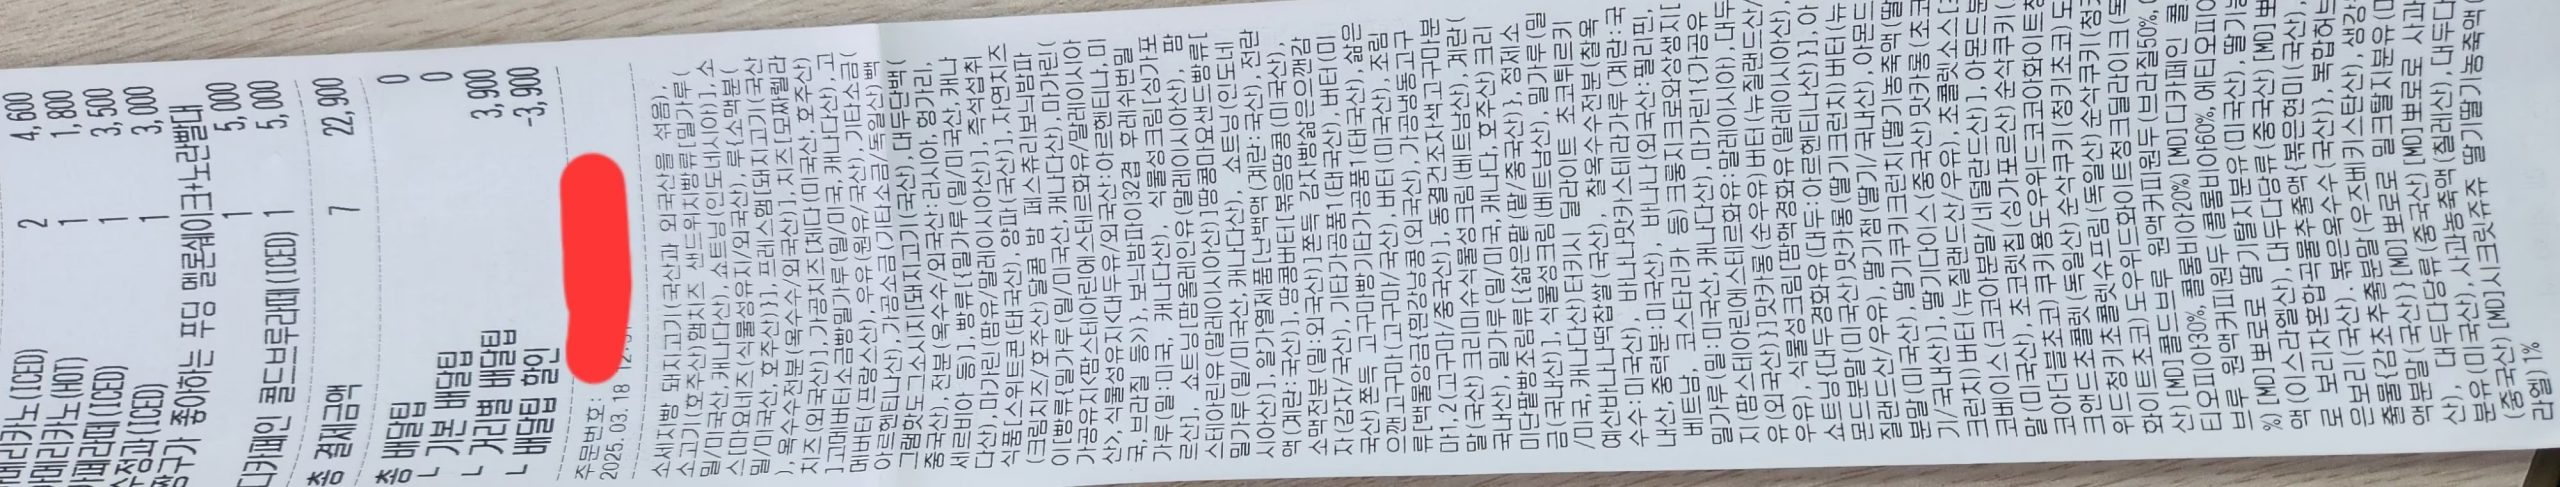 아메리카노(ICED) 2 4,600
아메리카노(HOT) 1 1,800
카페라떼(ICED) 1 3,500
수정과(ICED) 1 3,000
짱구가 좋아하는 푸딩 멜로쉐이크+노란빨대
1 5,000
디카페인 콜드브루라떼(ICED) 1 5,000
총 결제금액 7 22,900
총 배달팁 0
ㄴ 기본 배달팁 0
ㄴ 거리별 배달팁 3,900
ㄴ 배달팁 할인 -3,900
주문번호:
2025.03.18
소세지빵 돼지고기(국산과 외국산을 섞음),
소고기(호주산)햄치즈 샌드위치빵류[밀가루(
밀/미국산,캐나다산),쇼트닝(인도네시아)],소
스[마요네즈(식물성유지/외국산),루{소맥분(
밀/미국산,호주산)}],프레스햄[돼지고기(국산
),옥수수전분(옥수수/외국산)],치즈[모짜렐라
치즈(외국산)],가공치즈[체다(미국산,호주산)
]고메버터소금빵밀가루(밀/미국,캐나다산),고
메버터(프랑스산),우유(원유/국산),기타소금(
아르헨티나산),가공소금(기타소금/독일산)빽
그램핫도그소시지[돼지고기(국산),대두단백(
중국산),전분(옥수수/외국산:러시아,헝가리,
세르비아 등)],빵류[{밀가루(밀/미국산,캐나
다산),마가린(팜유/말레이시아산)],즉석섭취
식품[스위트콘(태국산),양파(국산)],자연치즈
(크림치즈/호주산)달콤 밤 페스츄리보늬밤파
이[빵류{밀가루(밀/미국산,캐나다산),마가린(
가공유지<팜스테아린에스테르화유/말레이시아
산>,식물성유지<대두유/외국산:아르헨티나,미
국,브라질 등>)},보늬밤파이32겹 후레쉬번밀
가루(밀:미국, 캐나다산), 식물성크림[싱가포
르산], 쇼트닝[팜올레인유(말레이시아산), 팜
스테아린유(말레이시아산)]땅콩마요샌드빵류[
밀가루(밀/미국산,캐나다산), 쇼트닝(인도네
시아산)],알가열제품[난백액(계란:국산),전란
액(계란:국산)],땅콩버터[볶음땅콩(미국산),
소맥전분(밀:외국산)]쫀득 감자빵삶은으깬감
자(감자/국산),기타가공품1(태국산),버터(미
국산)쫀득 고구마빵기타가공품1(태국산),삶은
으깬고구마(고구마/국산),버터(미국산),조림
류[빽울앙금{흰강낭콩(외국산),가공냉동고구
마1,2(고구마/중국산)],동결건조자색고구마분
말(국산)크리미수식물성크림(베트남산),계란(
국내산),밀가루(밀/미국,캐나다,호주산)크리
미단팥빵조림류[{삶은팥(팥/중국산)},정제소
금(국내산)],식물성크림(베트남산),밀가루(밀
/미국,캐나다산)타키시 딜라이트 초코튀르키
예산바나나떡찹쌀(국산), 찰옥수수전분(찰옥
수수:미국산), 바나나맛카스테라가루(계란:국
내산,중력분:미국산), 바나나(외국산:필리핀,
베트남, 코스타리카 등)크룽지크로와상생지[
밀가루(밀:미국산,캐나다산),마가린1{가공유
지(팜스테아린에스테르화유:말레이시아,대두
유(외국산)}]맛카롱(순우유)버터(뉴질랜드산/
우유),식물성크림[팜핵경화유(말레이시아산),
쇼트닝{대두경화유(대두:아르헨티나산)}],아
몬드분말(미국산)맛카롱(딸기크런치)버터(뉴
질랜드산/우유),딸기잼(딸기/국내산),아몬드
분말(미국산), 딸기쿠키크런치[딸기농축액(딸
기/국내산)],딸기다이스(중국산)맛카롱(초코
크런치)버터(뉴질랜드산/우유),초콜렛소스[코
코베이스(코코아분말/네덜란드산)],아몬드분
말(미국산), 초코렛칩(싱가포르산)순삭쿠키(
코아더블초코)쿠키용도우위드코코아화이트청
크앤드초콜렛(독일산)순삭쿠키(청키초코)도
우위드청키초콜렛수프림(독일산)순삭쿠키(청키
화이트초코)도우위드화이트청크딜라이크(독
산)[MD]콜드브루 원액커피원두(브라질50%,
티오피아30%, 콜롬비아20%)[MD]디카페인 콜
브루 원액커피원두(콜롬비아60%,에티오피아
%)[MD]뽀로로 딸기탈지분유(미국산),딸기농
액(이스라엘산),대두다당류(중국산)[MD]뽀
로 보리차혼합곡물추출액{볶은현미(국산),
은보리(국산),볶은옥수수(국산)},복합허브
출물(감초추출분말(우즈베키스탄산),생강
액분말 국산)}[MD]뽀로로 밀크탈지분유(미
산), 대두다당류(중국산)[MD]뽀로로 사과
분유(미국산),사과농축액(칠레산),대두다
(중국산)[MD]시크릿쥬쥬 딸기딸기농축액(
라엘)1%